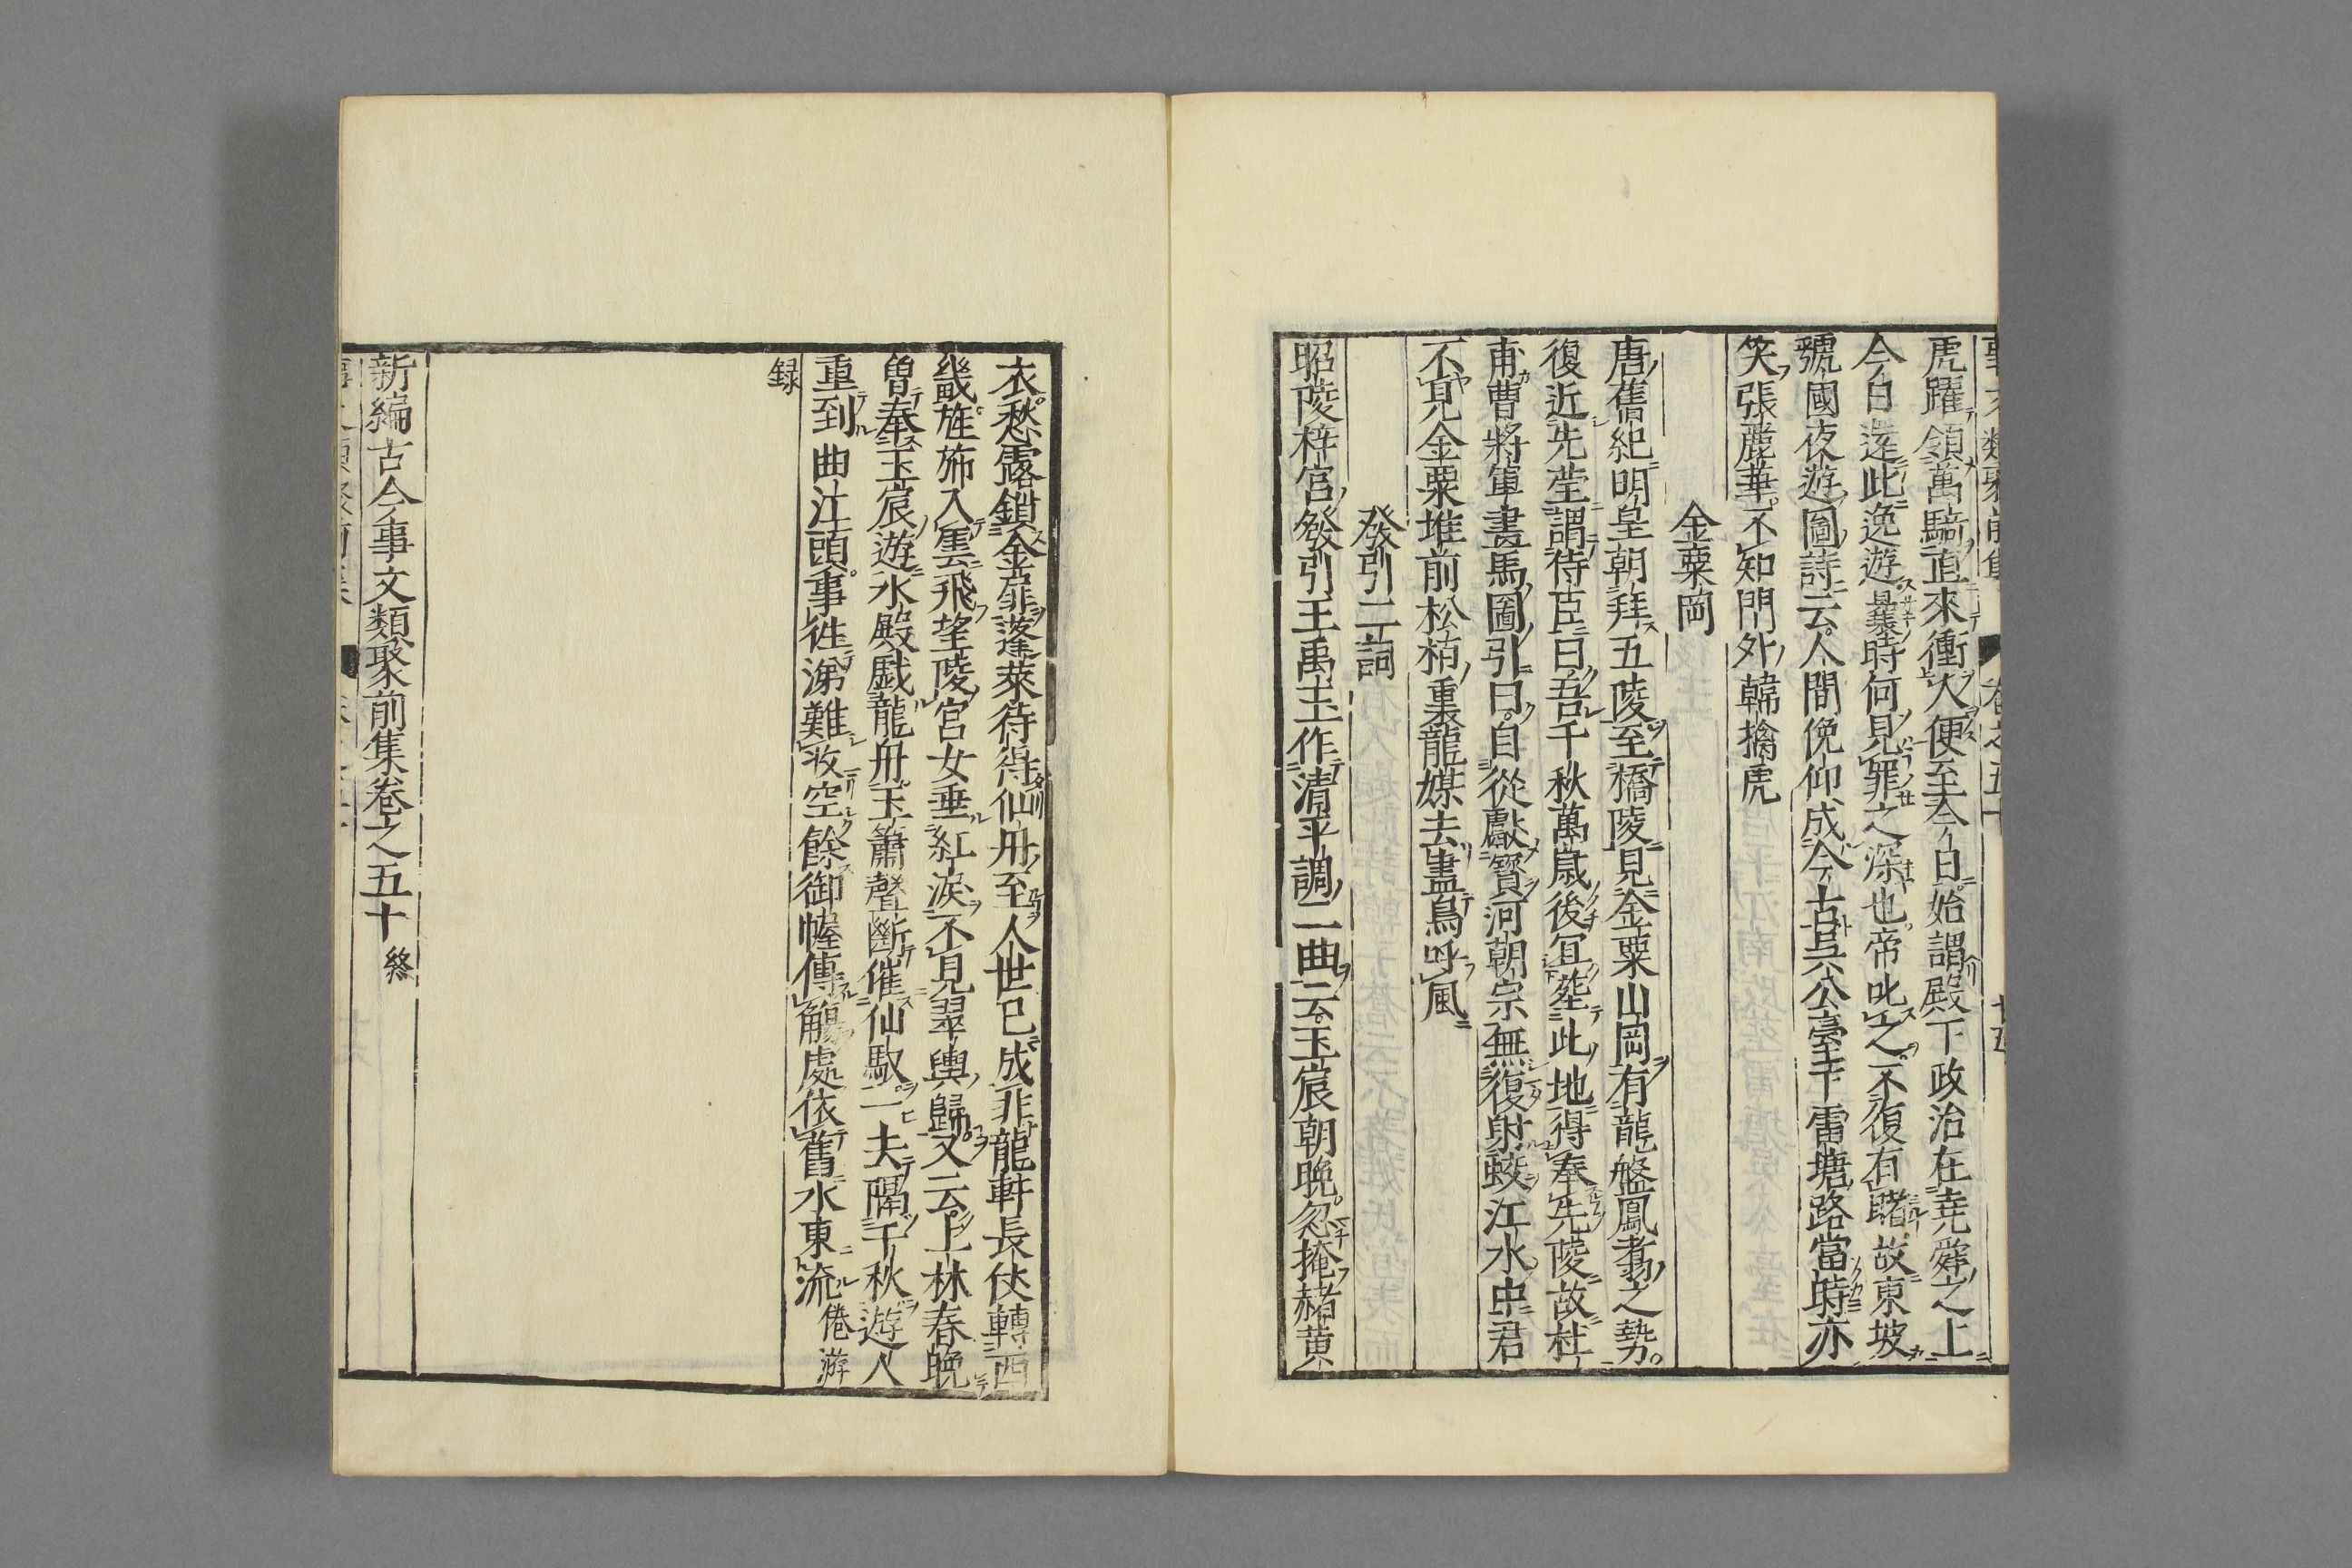 虎躍領萬騎直來衝人便至今日始謂殿下政治在堯舜之上
今日還此逸遊曩時何見罪之深也帝叱之不復有睹故東坡
虢國夜遊圖詩云人間俛仰成今古吳公臺下雷塘路當時亦
笑張麗華不知門外韓擒虎
金粟岡
唐舊紀明皇朝拜五陵至橋陵見金粟山岡有龍盤鳳翥之勢
復近先塋謂侍臣曰吾千秋萬歲後宜葬此地得奉先陵故杜
甫曹將軍畫馬圖引曰自從獻寶河朝宗無復射蛟江水中君
不見金粟堆前松栢裏龍媒去盡鳥呼風
發引二詞
昭陵梓宮發引王禹玉作清平調二曲云玉宸朝晚忽掩赭黄
衣愁露鎖金扉蓬萊待得仙丹至人世已成非龍軒長仗轉西
畿旌斾入雲飛望陵宮女垂紅淚不見翠輿歸又云上林春晚
曾奉玉宸遊水殿戲龍舟玉簫聲斷催仙馭一夫隔千秋遊人
重到曲江頭事徃涕難收空餘御幄傳觴處依舊水東流 倦游
録
新編古今事文類聚前集卷之五十 終